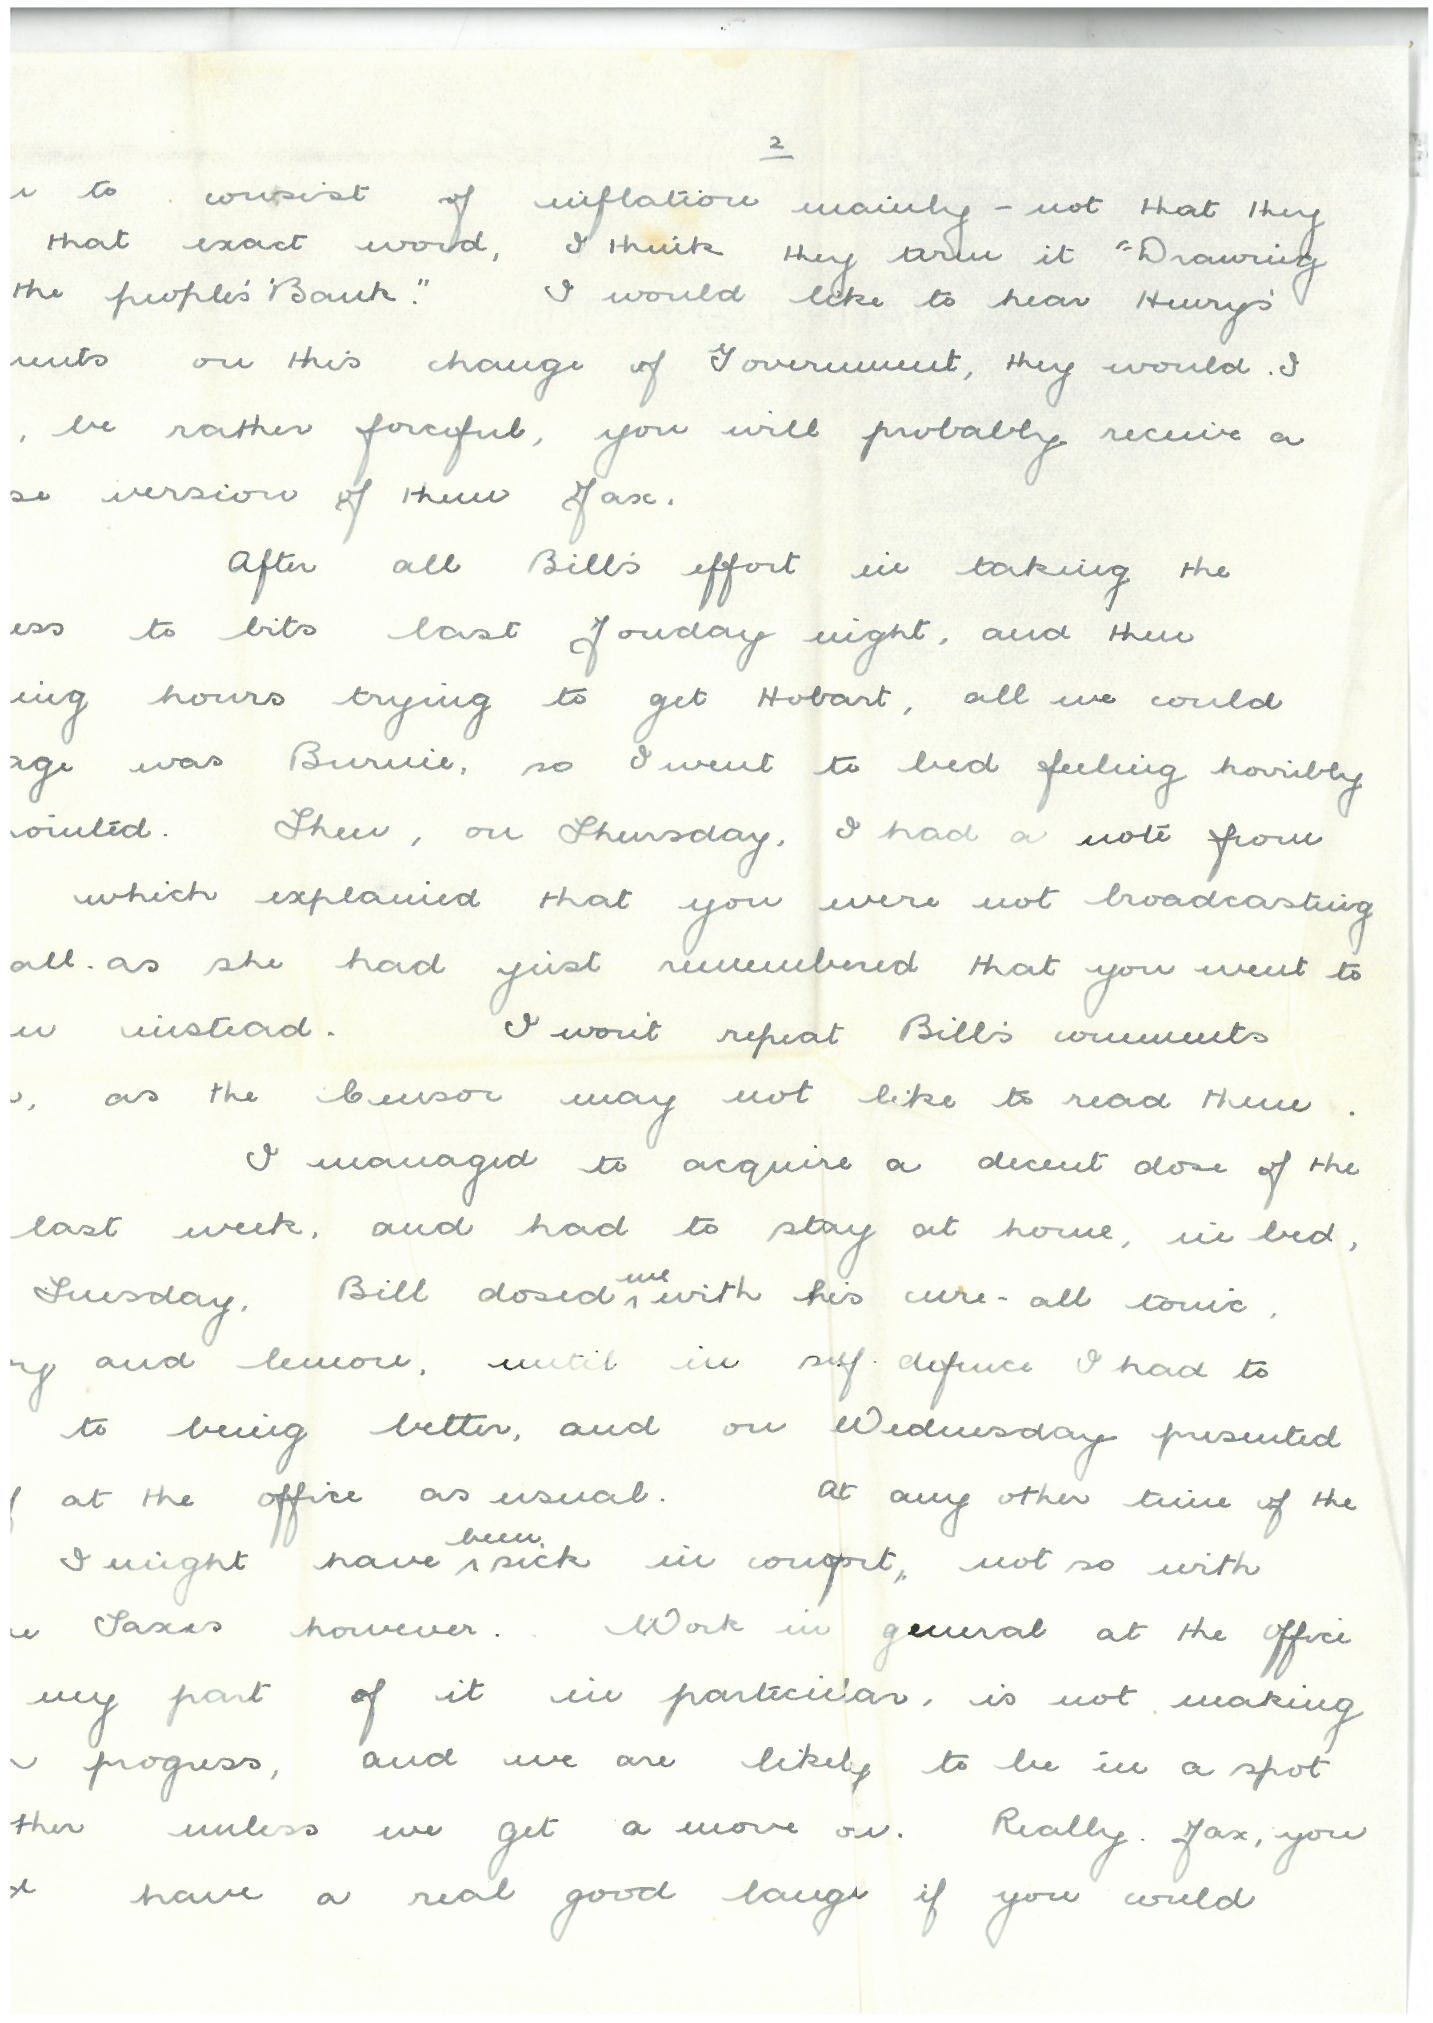 2
to consist of inflation mainly - not that they
that exact word, I think they term it "Drawing
the people's Bank." I would like to hear Henry's
on this change of Government, they would. I
, be rather forceful, you will probably receive a
version of them Jax.
After all Bill's effort in taking the
to bits last Jonday night, and then
ing hours trying to get Hobart, all we could
age was Burnie, so I went to bed feeling horribly
ointed. Then, on Thursday, I had a note from
which explained that you were not broadcasting
all. as she had just remembered that you went to
instead. I won't repeat Bill's comments
, as the Censor may not like to read them.
I managed to acquire a decent dose of the
last week, and had to stay at home, in bed,
Tuesday. Bill dosed me with his cure-all tonic,
and lemon, until in self defence I had to
to being better, and on Wednesday presented
at the office as usual. At any other time of the
I might have been sick in comfort, not so with
Taxes however. Work in general at the office
my part of it in particular, is not making
progress, and we are likely to be in a spot
ther unless we get a move on. Really. Jax, you
have a real good laugh if you could